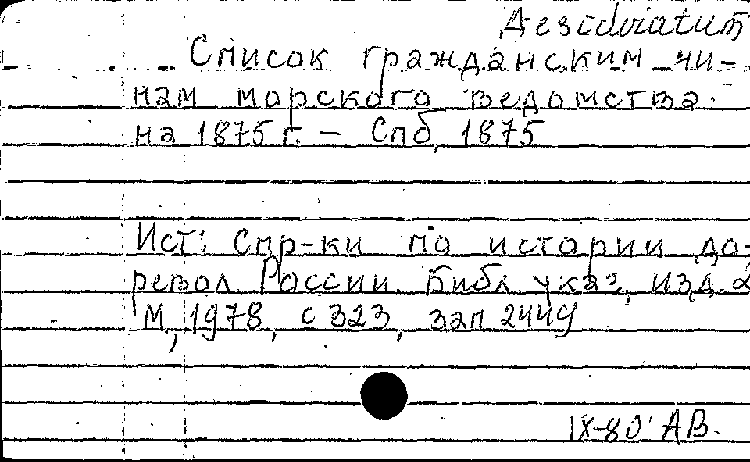 Desideratum
Список гражданским чи-
нам морского ведомства.
на 1875 г. – Спб, 1875
Ист: Спр-ки по истории до-
револ. России. Библ. указ, изд. 2
М, 1978, с 323, зап 2449
IX-80 АВ.